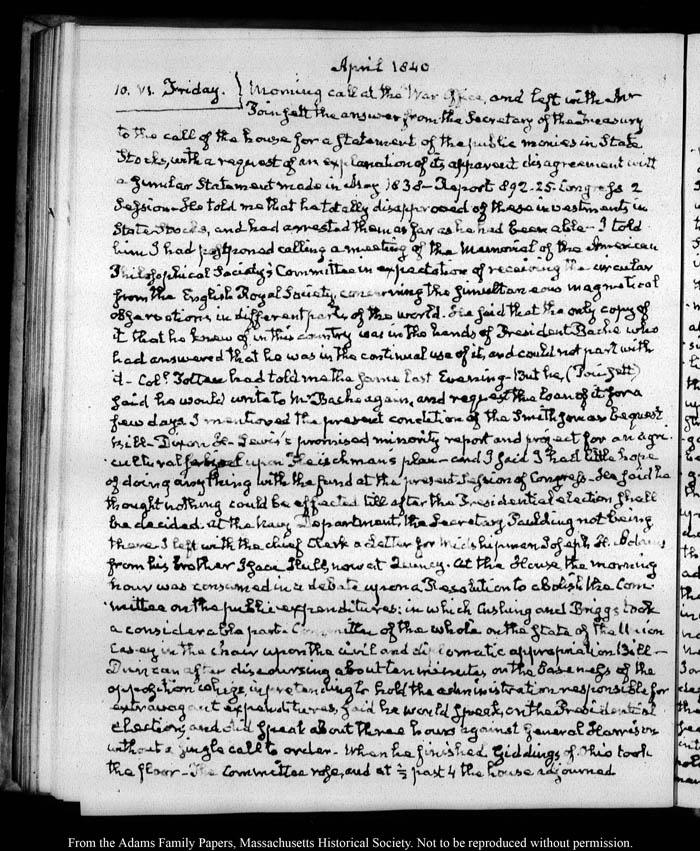 April 1840
10. VI. Friday. } Morning call at the War Office, and left with Mr
Poinsett the answer from the Secretary of the Treasury
to the call of the house for a Statement of the public monies in State
Stocks, with a request of an explanation of its apparent disagreement with
a similar Statement made in May 1838 – Report 892. 25. Congress 2
Session – He told me that he totally disapproved of these investments in
State Stocks, and had arrested them as far as he had been able – I told
him I had postponed calling a meeting of the Memorial of the American
Philosophical Society's Committee in expectation of receiving the circular
from the English Royal Society, concerning the simultaneous magnetical
observations in different parts of the world. He said that the only copy of
it that he knew of in this country was in the hands of President Bache who
had answered that he was in the continual use of it, and could not part with
it – Col.l Totten had told me the same last Evening – But he, (Poinsett)
said he would write to Mr Bache again, and request the loan of it for a
few days. I mentioned the present condition of the Smithsonian bequest
Bill – Dixon H. Lewis's promised minority report and project for an agri-
cultural school upon Fleischman's plan – and I said I had little hope
of doing anything with the fund at the present Session of Congress – He said he
thought nothing could be effected till after the Presidential election shall
be decided. At the Navy Department, the Secretary Paulding not being
there I left with the chief Clerk a Letter for Midshipman Joseph H. Adams
from his brother Isaac Hull, now at Quincy. At the House the morning
hour was consumed in a debate upon a Resolution to abolish the Com-
mittee on the public expenditures: in which Cushing and Briggs took
a considerable part. Committee of the whole on the State of the Union
Casey in the chair upon the civil and diplomatic appropriation Bill –
Duncan after discoursing about ten minutes on the baseness of the
opposition whigs, in pretending to hold the administration responsible for
extravagant expenditures, said he would speak, on the Presidential
election, and did speak about three hours against General Harrison
without a single call to order – When he finished Giddings of Ohio took
the floor – The Committee rose, and at ½ past 4 the house adjourned
From the Adams Family Papers, Massachusetts Historical Society. Not to be reproduced without permission.